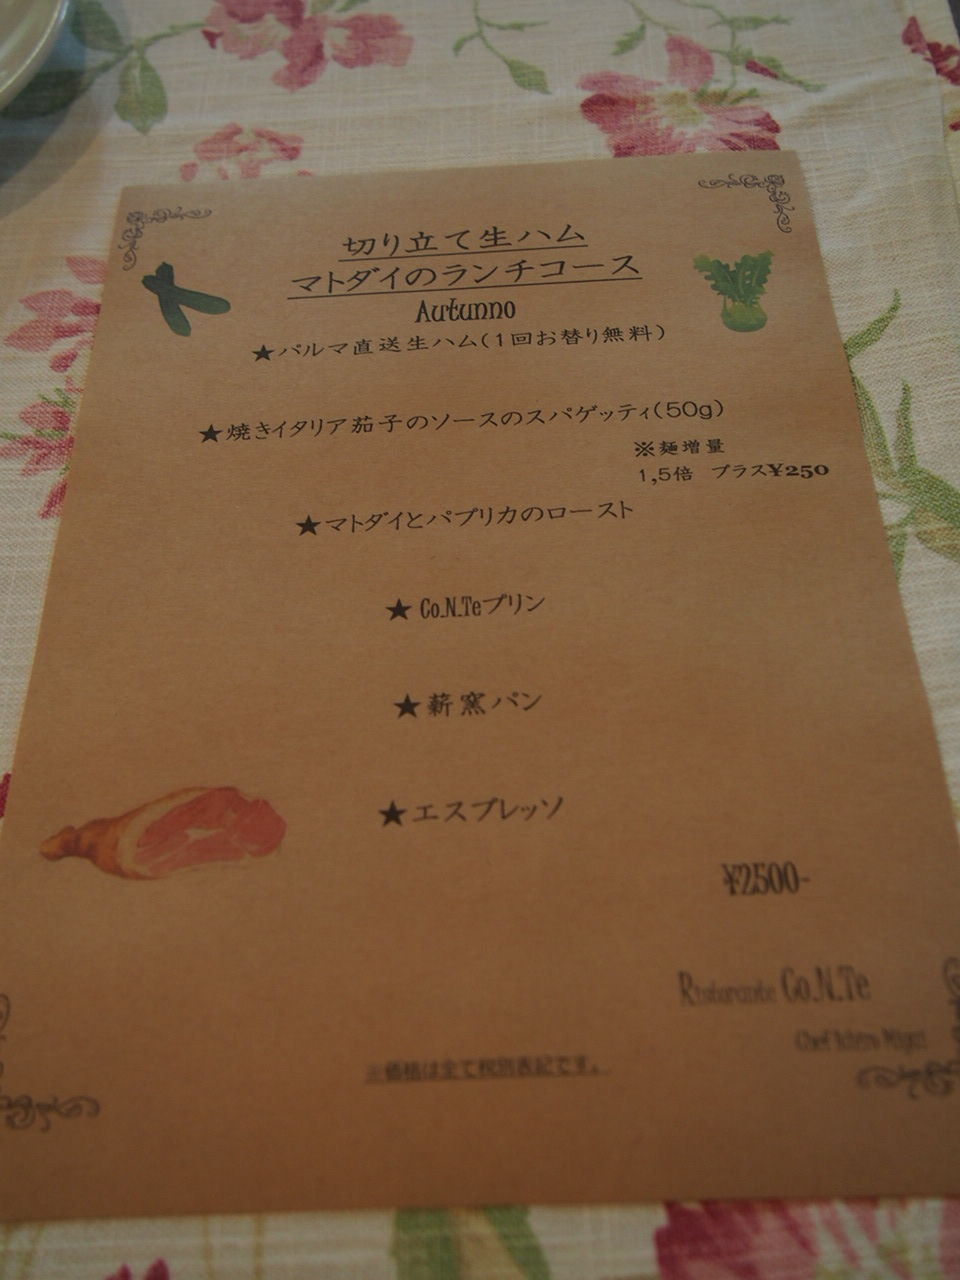 切り立て生ハム
マトダイのランチコース
Autunno
★パルマ直送生ハム(1回お替り無料)
★焼きイタリア茄子のソースのスパゲッティ(50g)
※麺増量
1,5倍 プラス¥250
★マトダイとパプリカのロースト
★Co.N.Teプリン
★薪窯パン
★エスプレッソ
¥2500-
Ristorante Co.N.Te
Chef Ichiro
※価格は全て税別表記です。